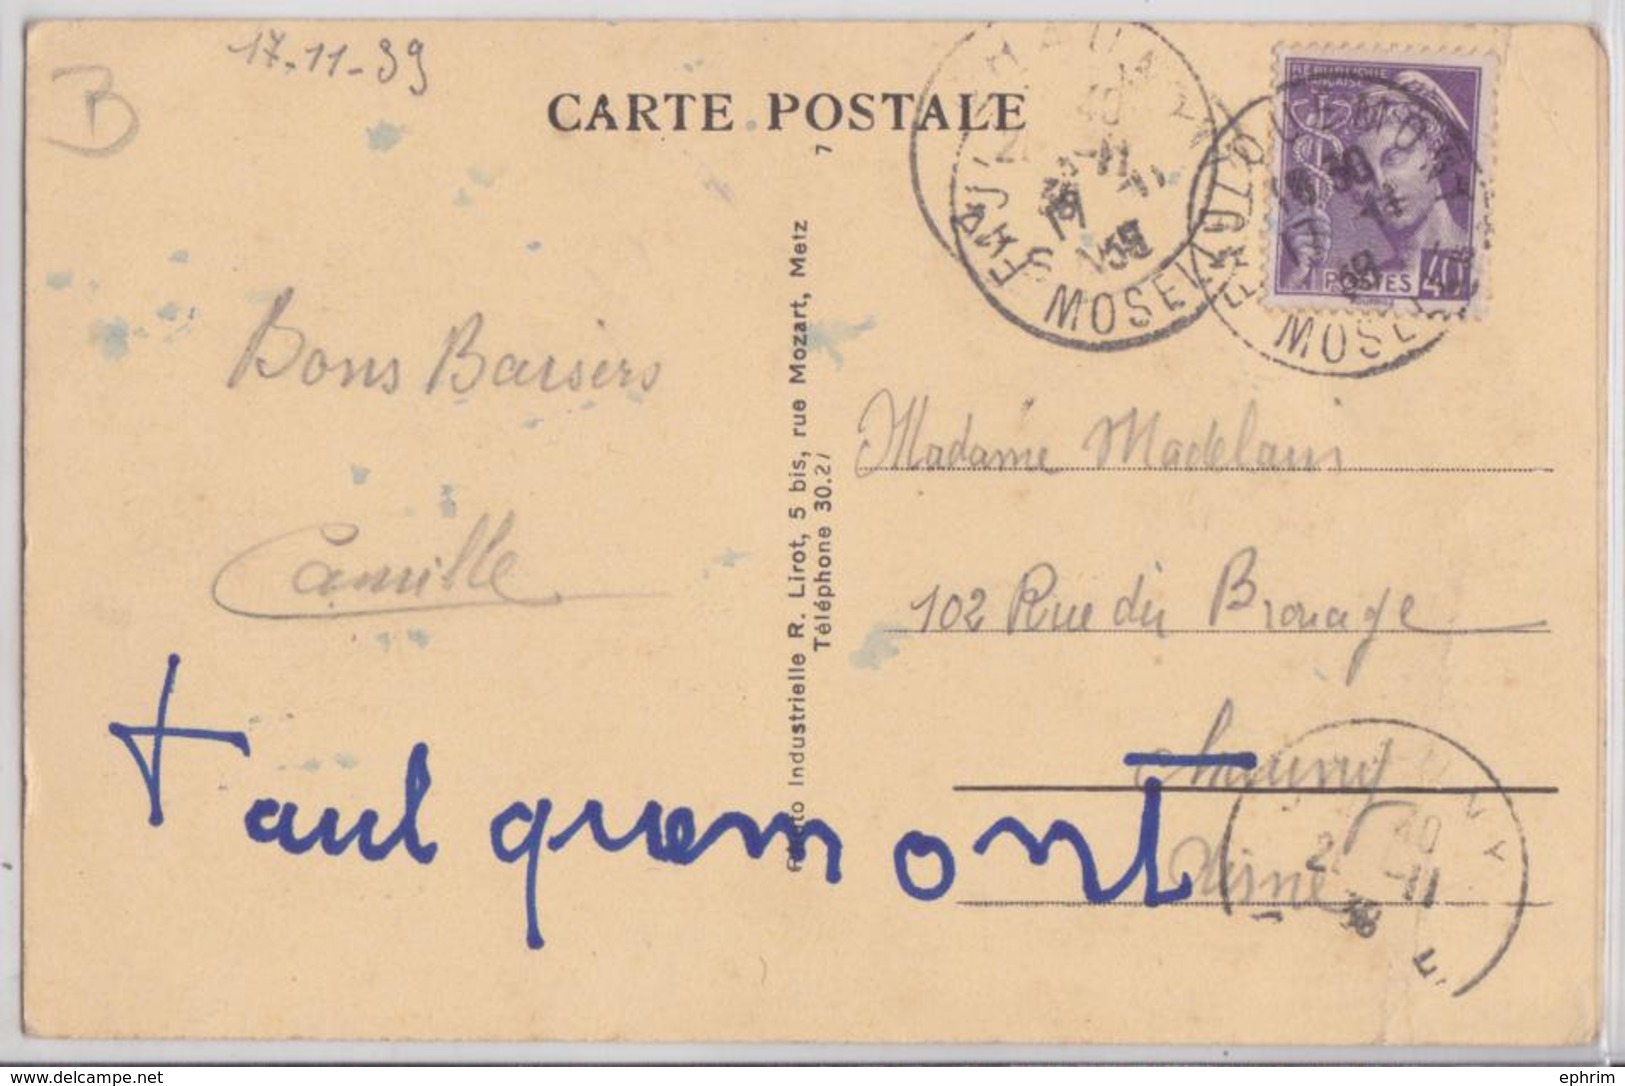 17-11-39
B
CARTE POSTALE
7
RÉPUBLIQUE
FRANÇAISE
POSTES 40
FAULQUEMONT
MOSELLE
FAULQUEMONT
MOSELLE
Bons Baisers
Camille
Photo Industrielle R. Lirot, 5 bis, rue Mozart, Metz
Téléphone 30.21
Madame Madelain
102 Rue du Brouage
Chauny
Aisne
CHAUNY
40
-11
faulquemont
ephrim